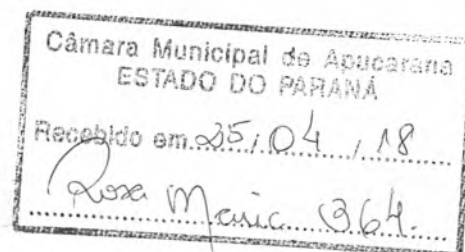 Câmara Municipal de Apucarana
ESTADO DO PARANÁ
Recebido em 25, 04, 18
Rosa Maria 364.